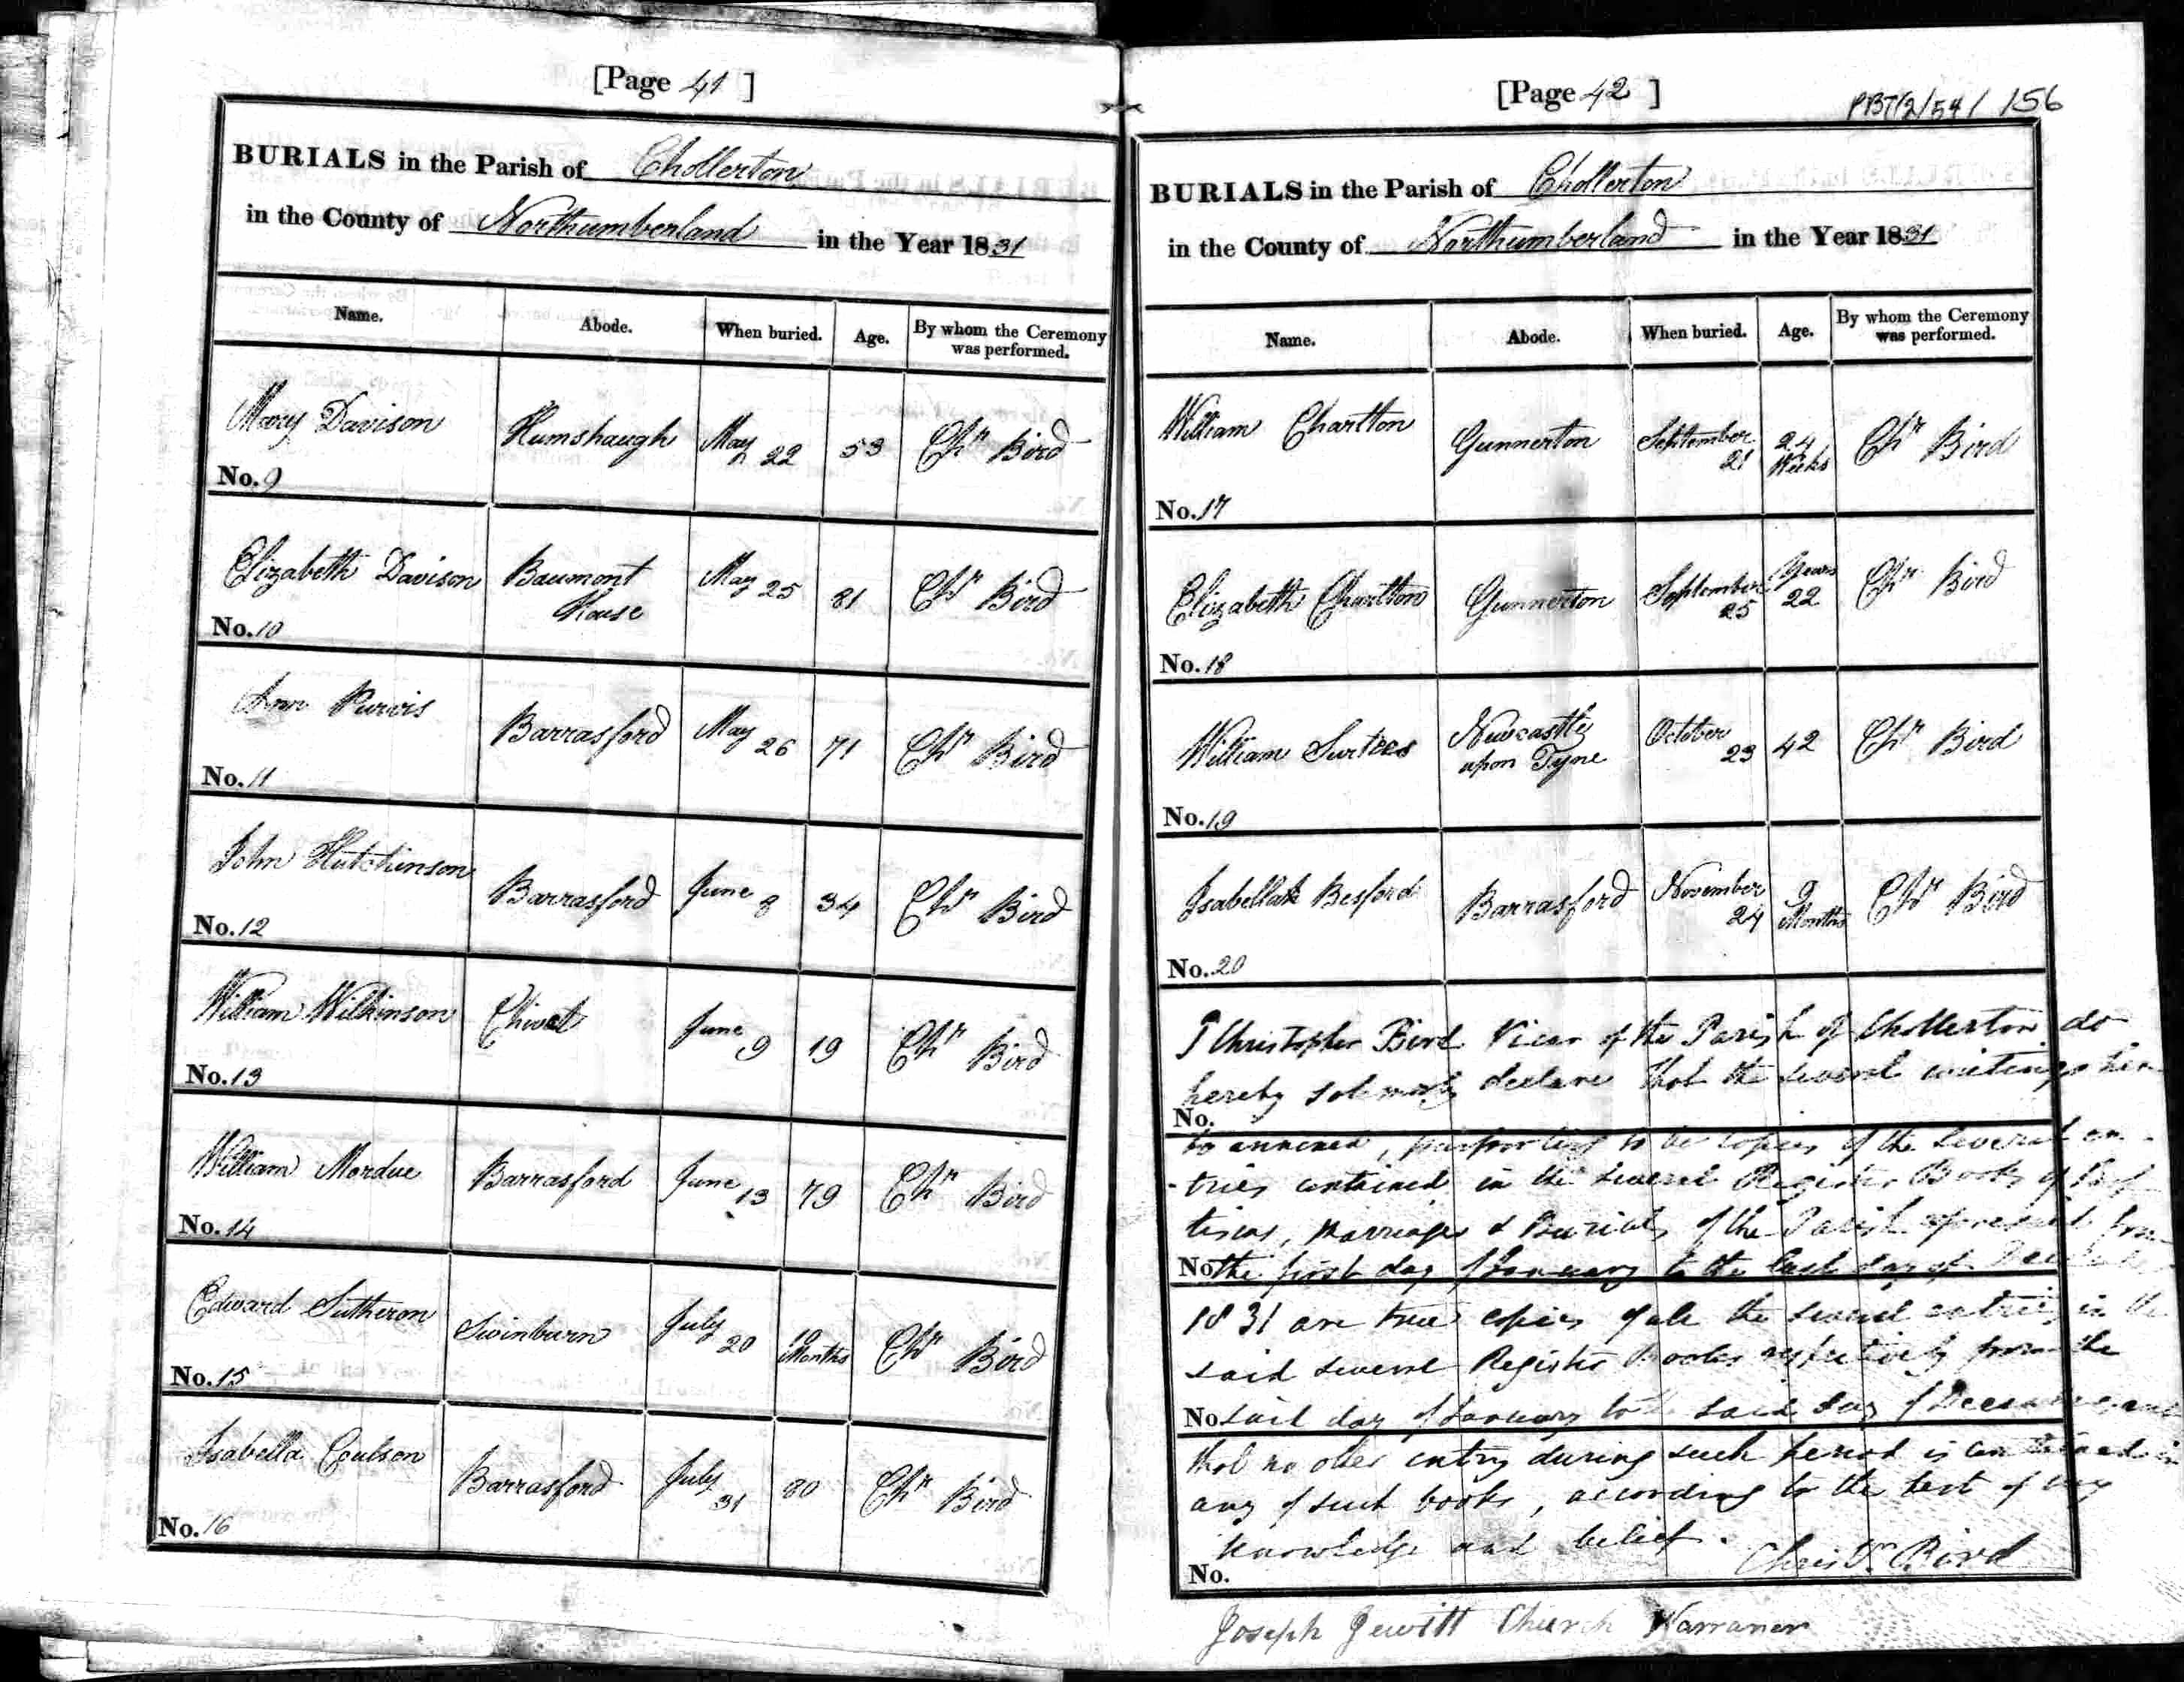 [Page 41]
BURIALS in the Parish of Chollerton
in the County of Northumberland in the Year 1831
Name. Abode. When buried. Age. By whom the Ceremony was performed.
Mary Davison Humshaugh May 22 53 Chr Bird
No. 9
Elizabeth Davison Baumont House May 25 81 Chr Bird
No. 10
Ann Purvis Barrasford May 26 71 Chr Bird
No. 11
John Hutchinson Barrasford June 8 34 Chr Bird
No. 12
William Wilkinson June 9 19 Chr Bird
No. 13
William Mordue Barrasford June 13 79 Chr Bird
No. 14
Edward Sutheron Swinburn July 20 10 Months Chr Bird
No. 15
Isabella Coulson Barrasford July 31 80 Chr Bird
No. 16
[Page 42]
PBT/2/54/156
BURIALS in the Parish of Chollerton
in the County of Northumberland in the Year 1831
Name. Abode. When buried. Age. By whom the Ceremony was performed.
William Charlton Gunnerton September 21 24 Weeks Chr Bird
No. 17
Elizabeth Charlton Gunnerton September 25 Years 22 Chr Bird
No. 18
William Surtees Newcastle upon Tyne October 23 42 Chr Bird
No. 19
Isabella Besford Barrasford November 24 9 Months Chr Bird
No. 20
I Christopher Bird Vicar of the Parish of Chollerton do
hereby solemnly declare that the several writings here
No.
to annexed, purporting to be copies of the several en-
-tries contained in the several Register Books of Bap
tisms, Marriages & Burials of the Parish aforesaid from
No. the first day of January to the last day of December
1831 are true copies of all the several entries in the
said several Register Books respectively from the
No. said day of January to the said day of December and
that no other entry during such period is contained in
any of such books, according to the best of my
knowledge and belief.
No.
Christr. Bird
Joseph Jewitt Church Warraner